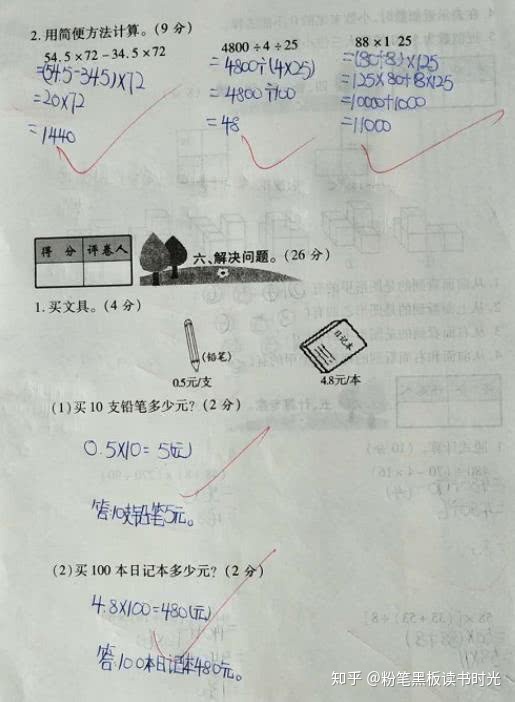 2.用简便方法计算。(9 分)
54.5×72-34.5×72
=(54.5-34.5)×72
=20×72
=1440
4800÷4÷25
=4800÷(4×25)
=4800÷100
=48
88×1 25
=(80+8)×125
=125×80+8×125
=10000+1000
=11000
得 分 评卷人
六、解决问题。(26 分)
1.买文具。(4 分)
(铅笔)
日记本
0.5元/支
4.8元/本
(1)买 10 支铅笔多少元?(2 分)
0.5×10=5(元)
答:10支铅笔5元。
(2)买 100 本日记本多少元?(2 分)
4.8×100=480(元)
答:100本日记本480元。
知乎 @粉笔黑板读书时光